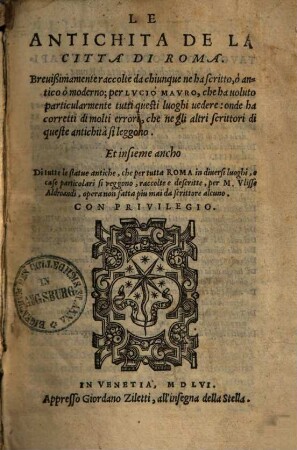 LE
ANTICHITA DE LA
CITTA DI ROMA.
Breuissimamente raccolte da chiunque ne ha scritto, ò an-
tico ò moderno; per LUCIO MAURO, che ha uoluto
particularmente tutti questi luoghi uedere: onde ha
corretti di molti errori, che ne gli altri scrittori di
queste antichità si leggono.
Et insieme ancho
Di tutte le statue antiche, che per tutta ROMA in diuersi luoghi, e
case particulari si veggono, raccolte e descritte, per M. Vlisse
Aldroandi, opera non fatta piu mai da scrittore alcuno.
CON PRIVILEGIO.
AUGSBURG
IN VENETIA, M D LVI.
Appresso Giordano Ziletti, all'insegna della Stella.